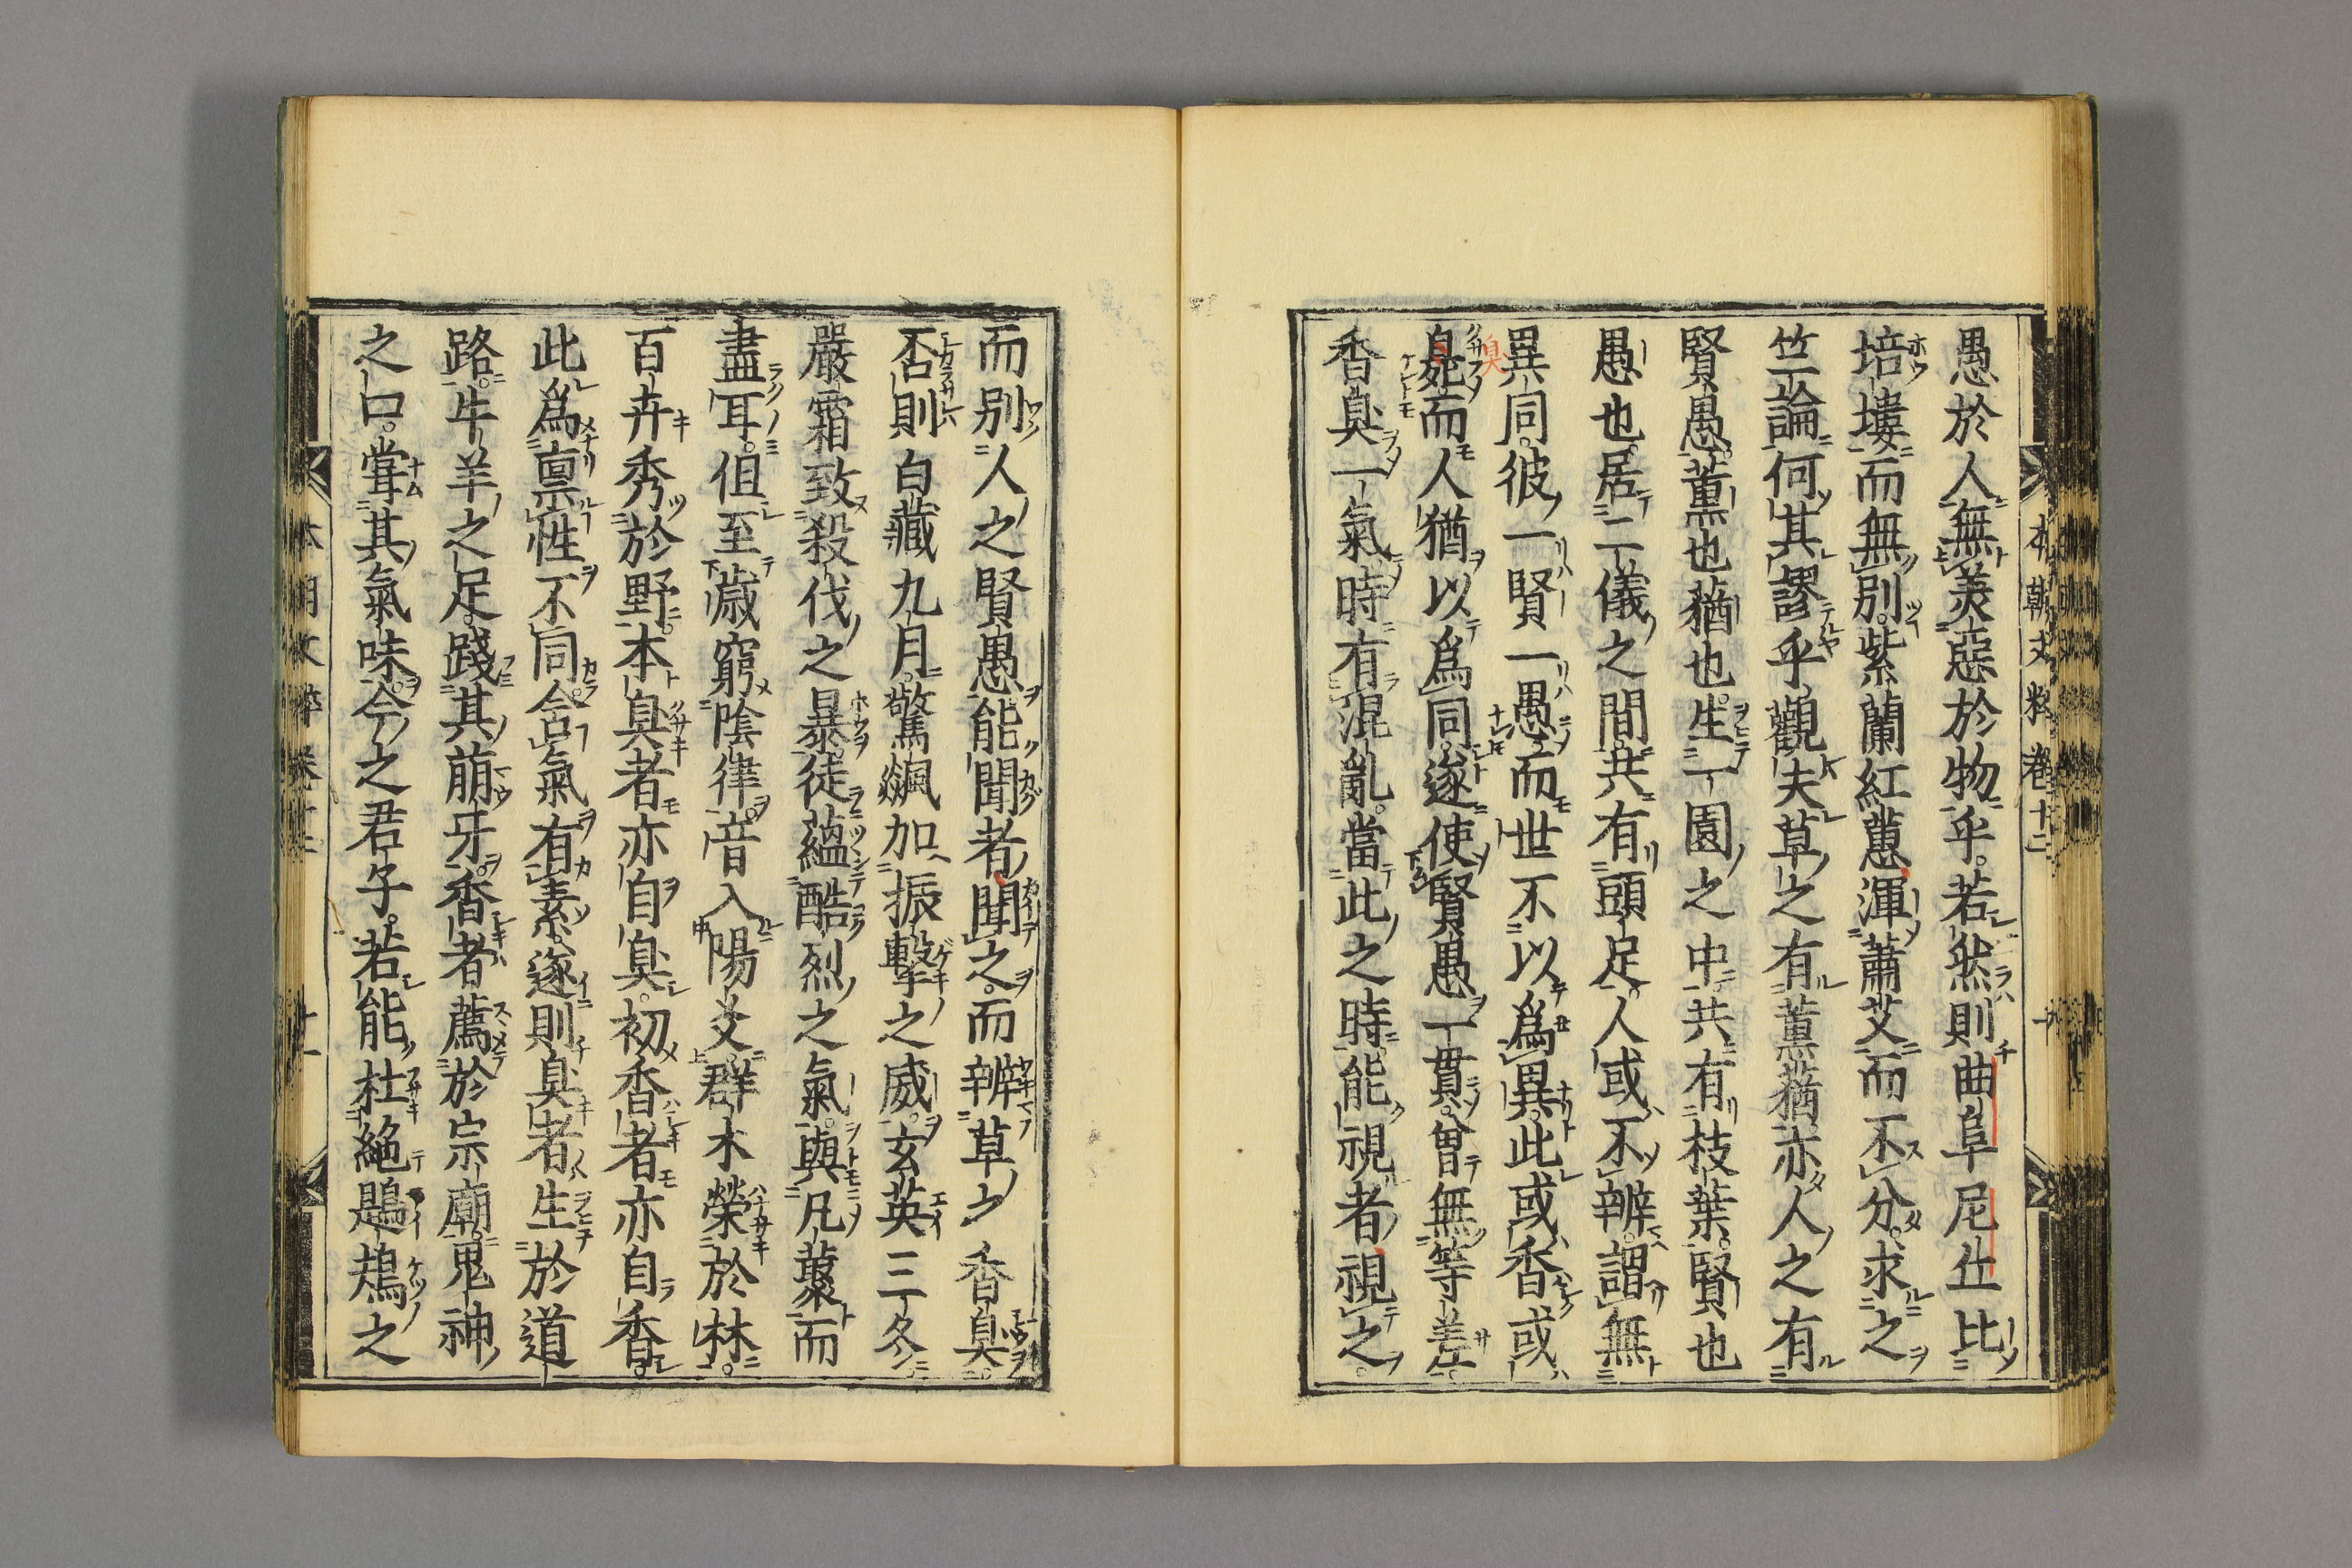 愚於人無美惡於物乎若然則曲阜尼丘比
培塿而無別紫蘭紅蕙渾蕭艾而不分求之
竺論何其謬乎觀夫草之有薰蕕亦人之有
賢愚薰也蕕也生一園之中共有枝葉賢也
愚也居二儀之間共有頭足人或不辨謂無
異同彼一賢一愚而世不以爲異此或香或
臭
而人猶以爲同遂使賢愚一貫曾無等差
香臭一氣時有混亂當此之時能視者視之
本朝文粹卷十二
而別人之賢愚能聞者聞之而辨草之香臭
否則白藏九月驚飆加振擊之威玄英三冬
嚴霜致殺伐之暴徒蘊酷烈之氣與凡藂而
盡耳伹至歲窮陰律音入陽爻群木榮於林
百卉秀於野本臭者亦自臭初香者亦自香
此爲禀性不同含氣有素遂則臭者生於道
路牛羊之足踐其萠牙香者薦於宗廟鬼神
之口甞其氣味今之君子若能杜絶鶗鴂之
本朝文粹卷十二
十一